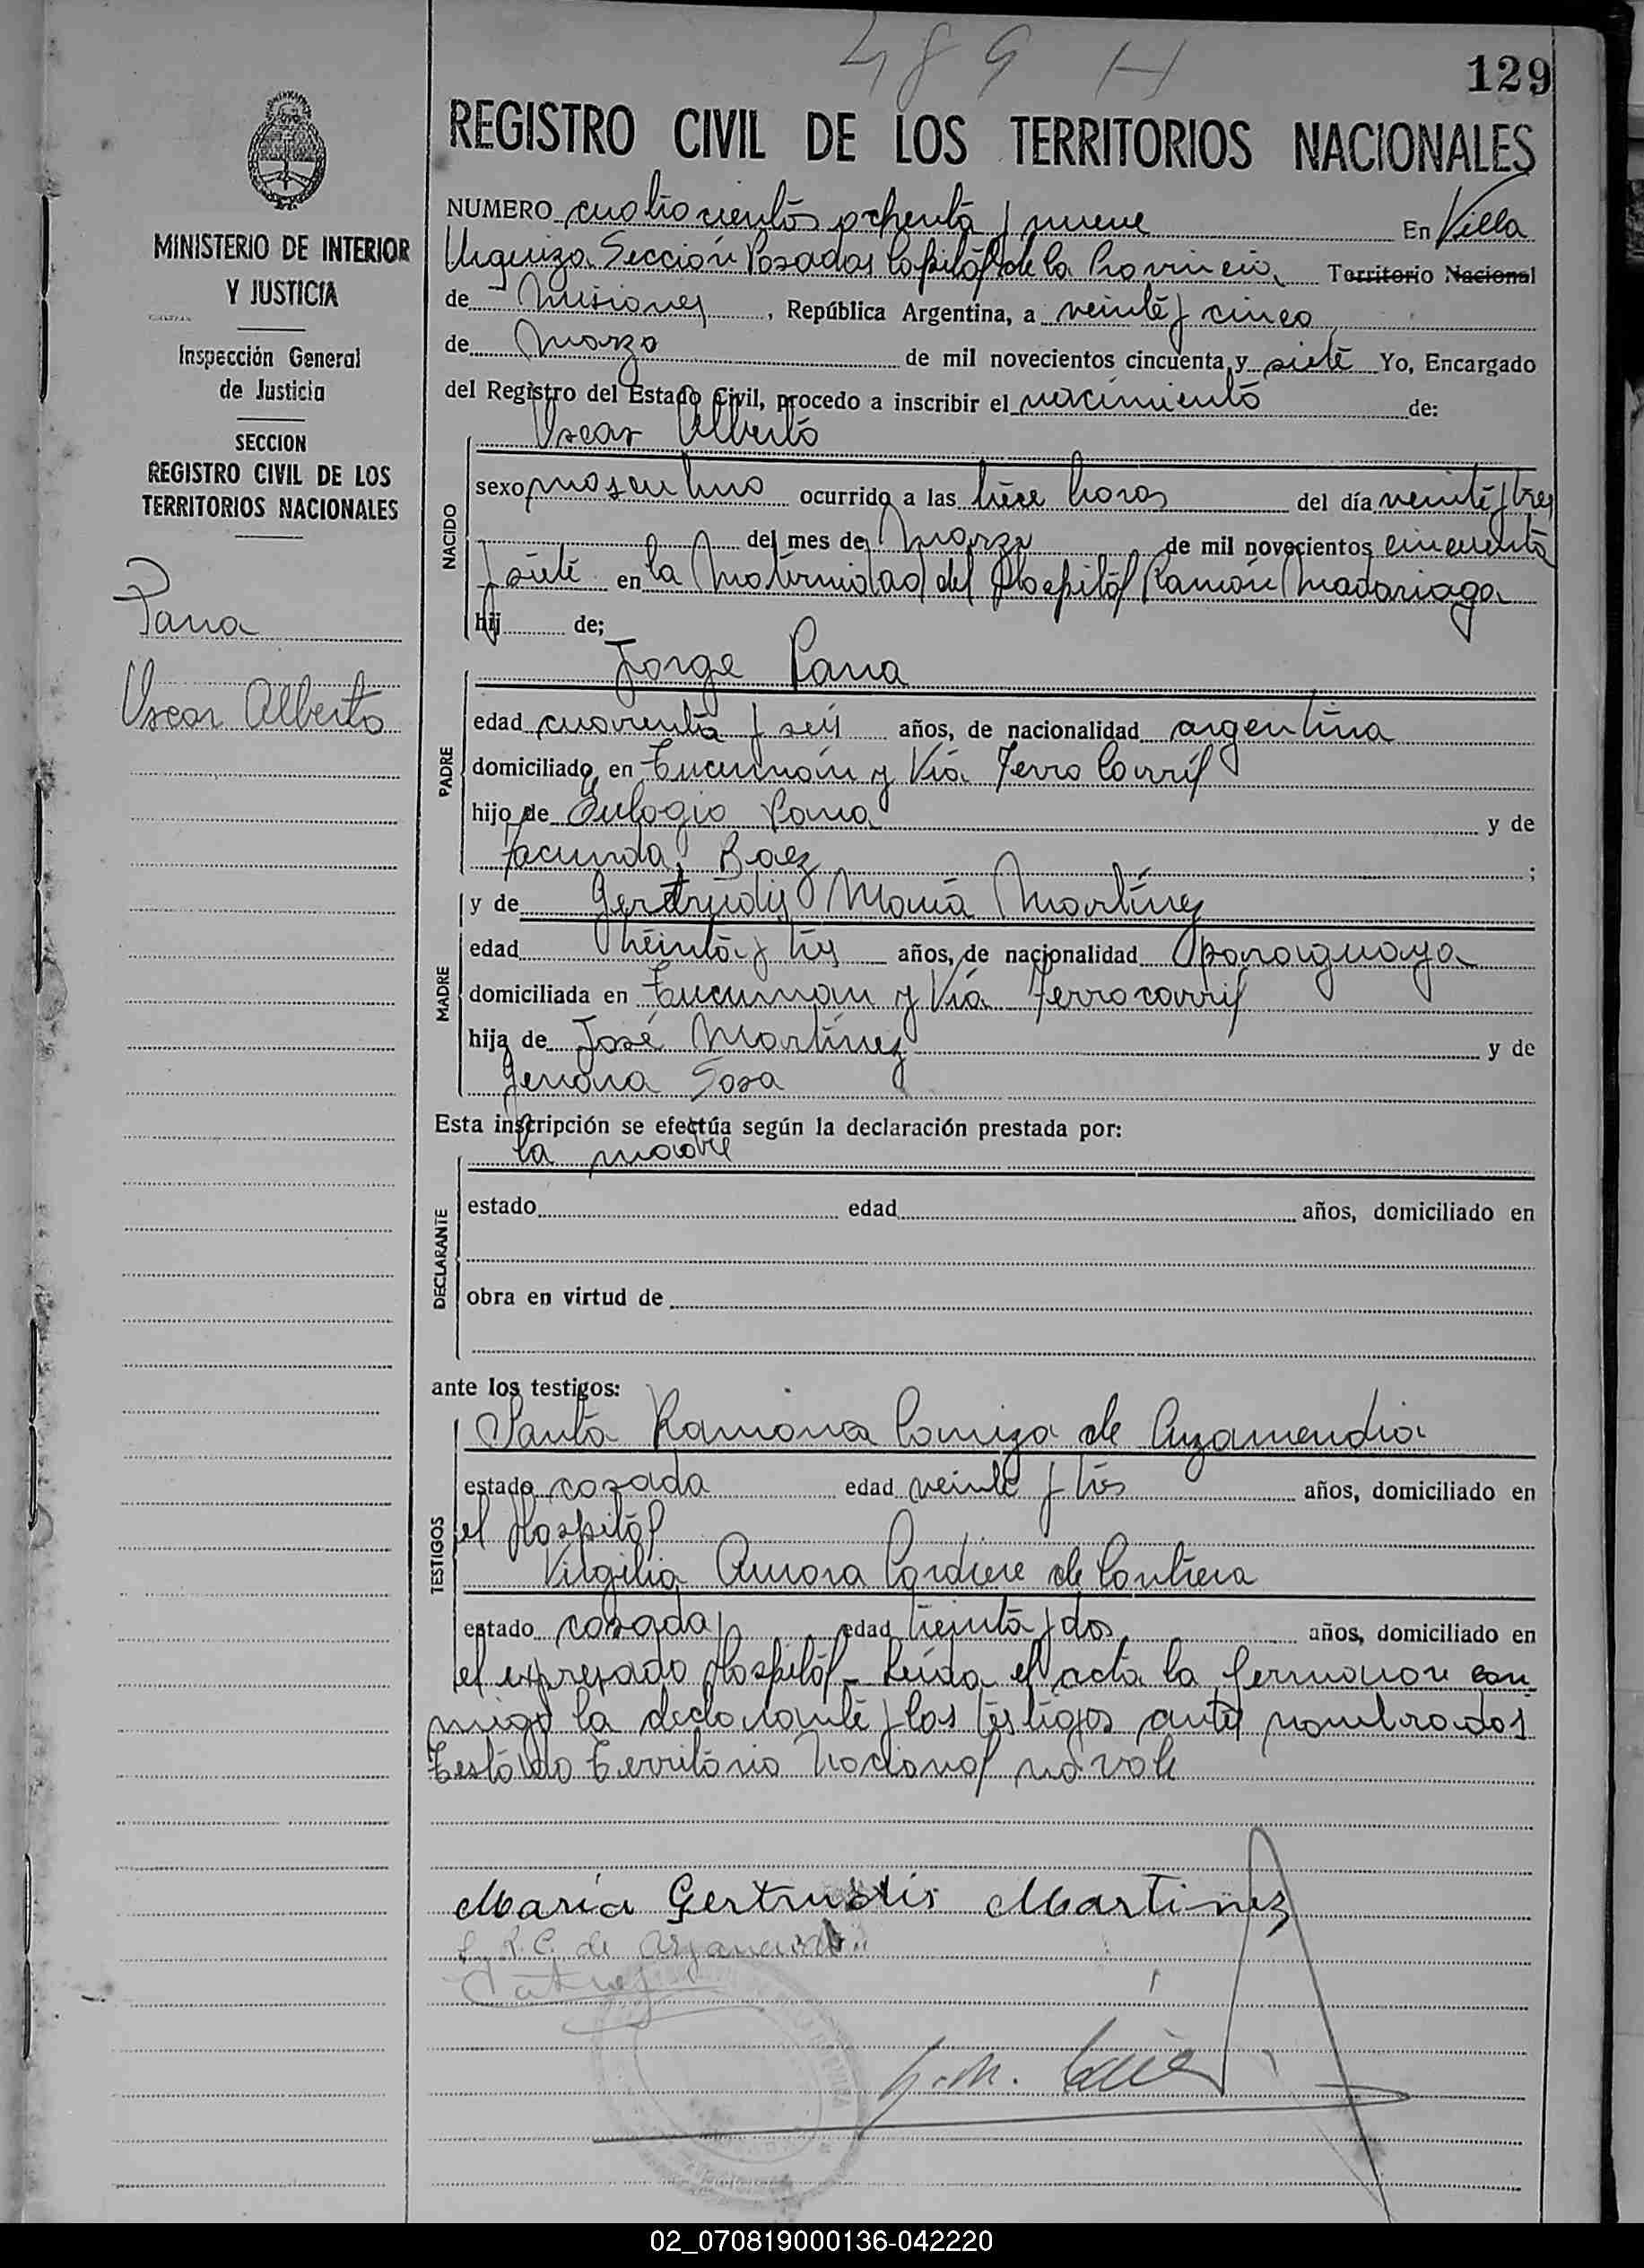 489 H
129
REGISTRO CIVIL DE LOS TERRITORIOS NACIONALES
MINISTERIO DE INTERIOR
Y JUSTICIA
Inspección General
de Justicia
SECCION
REGISTRO CIVIL DE LOS
TERRITORIOS NACIONALES
Pana
Oscar Alberto
NUMERO cuatrocientos ochenta y nueve En Villa
Urquiza Sección Posadas Capital de la Provincia Territorio Nacional
de Misiones, República Argentina, a veinte y cinco
de Marzo de mil novecientos cincuenta y siete Yo, Encargado
del Registro del Estado Civil, procedo a inscribir el nacimiento de:
NACIDO
Oscar Alberto
sexo masculino ocurrido a las trece horas del día veinte y tres
del mes de Marzo de mil novecientos cincuenta
y siete en la Maternidad del Hospital Ramón Madariaga
hij de;
PADRE
Jorge Pana
edad cuarenta y seis años, de nacionalidad argentina
domiciliado en Tucumán y Via Ferro Carril
hijo de Eulogio Pana y de
Facunda Baez ;
MADRE
y de Gertrudis Maria Martinez
edad treinta y tres años, de nacionalidad paraguaya
domiciliada en Tucuman y Via Ferrocarril
hija de José Martinez y de
Genona Sosa
Esta inscripción se efectúa según la declaración prestada por:
DECLARANTE
la madre
estado edad años, domiciliado en
obra en virtud de
ante los testigos:
TESTIGOS
Santa Ramona de
estado casada edad veinte y tres años, domiciliado en
el Hospital
Virgilia Aurora de
estado casada edad treinta y dos años, domiciliado en
el expresado Hospital - Leida el acta la firmaron con
migo la declarante y los testigos antes nombrados
Testado Territorio Nacional no vale
Maria Gertrudis Martinez
S. R. C. de
02_070819000136-042220